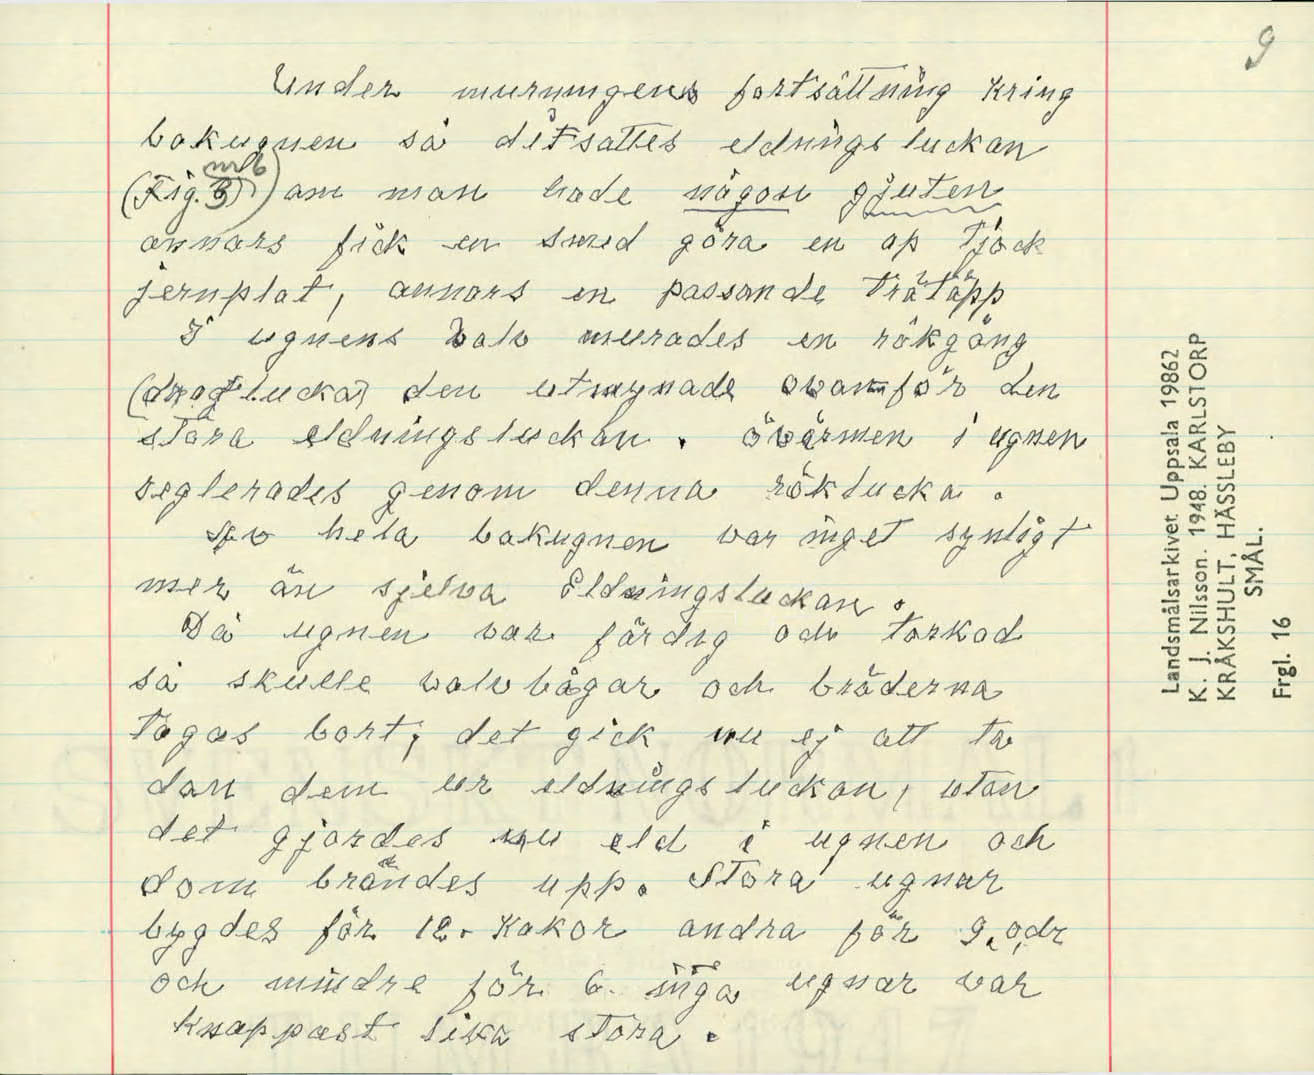 9
Under murningens fortsättning kring
bakugnen så ditsattes eldningsluckan
nr 6
(Fig. 3) om man hade någon gjuten
annars fick en smed göra en ap tjock
jernplat, annars en passande trätäpp
I ugnens valv murades en rökgång
(draglucka) den utmynade ovanför den
stora eldningsluckan. övärmen i ugnen
reglerades genom denna röklucka.
Av hela bakugnen var inget synligt
mer än sjelva Eldningsluckan.
Då ugnen var färdig och torkad
så skulle valvbågar och bräderna
togas bort, det gick nu ej att ta
dan dem ur eldningsluckan, utan
det gjordes nu eld i ugnen och
dom brändes upp. Stora ugnar
bygdes för 12. Kakor andra för 9,
och mindre för 6. ugnar var
knappast lika stora.
Landsmålsarkivet. Uppsala 19862
K. J. Nilsson. 1948. KARLSTORP
KRÅKSHULT, HÄSSLEBY
SMÅL.
Frgl. 16